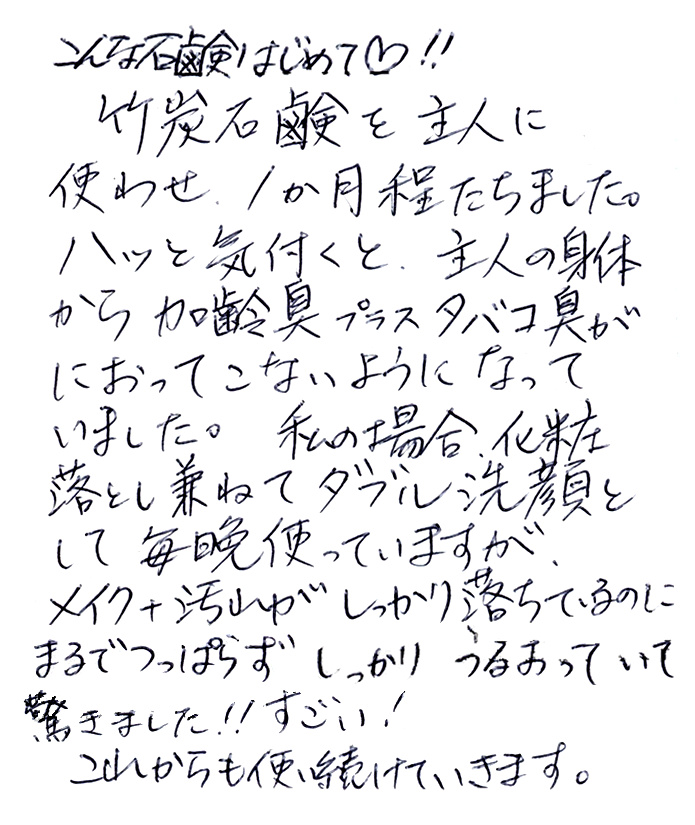 こんな石鹸はじめて♡!!
竹炭石鹸を主人に
使わせ、1か月程たちました。
ハッと気付くと、主人の身体
から加齢臭プラスタバコ臭が
におってこないようになって
いました。 私の場合、化粧
落とし兼ねてダブル洗顔と
して毎晩使っていますが、
メイク+汚れがしっかり落ちているのに
まるでつっぱらずしっかりうるおっていて
驚きました!!すごい!
これからも使い続けていきます。